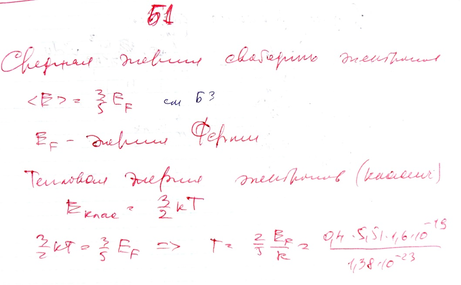 Б1
Средняя энергия свободных электронов
<E> = 3/5 E_F см Б3
E_F - энергия Ферми
Тепловая энергия электронов (классич)
E_клас = 3/2 kT
3/2 kT = 3/5 E_F => T = 2/5 E_F/k = 0,4 · 5,51 · 1,6 · 10^-19 / 1,38 · 10^-23